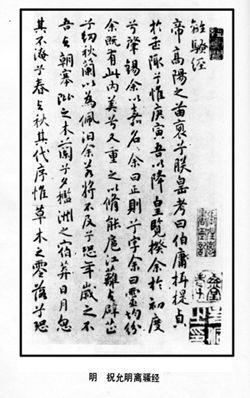 離騷經
帝高陽之苗裔兮朕皇考曰伯庸攝提貞
於孟陬兮惟庚寅吾以降皇覽揆余於初度
兮肇錫余以嘉名余曰正則兮字余曰靈均紛
余既有此內美兮又重之以脩能扈江蘺與辟芷
兮紉秋蘭以為佩汩余若將不及兮恐年歲之不
吾與朝搴阰之木蘭兮夕攬洲之宿莽日月忽
其不淹兮春與秋其代序惟草木之零落兮恐
明 祝允明离骚经